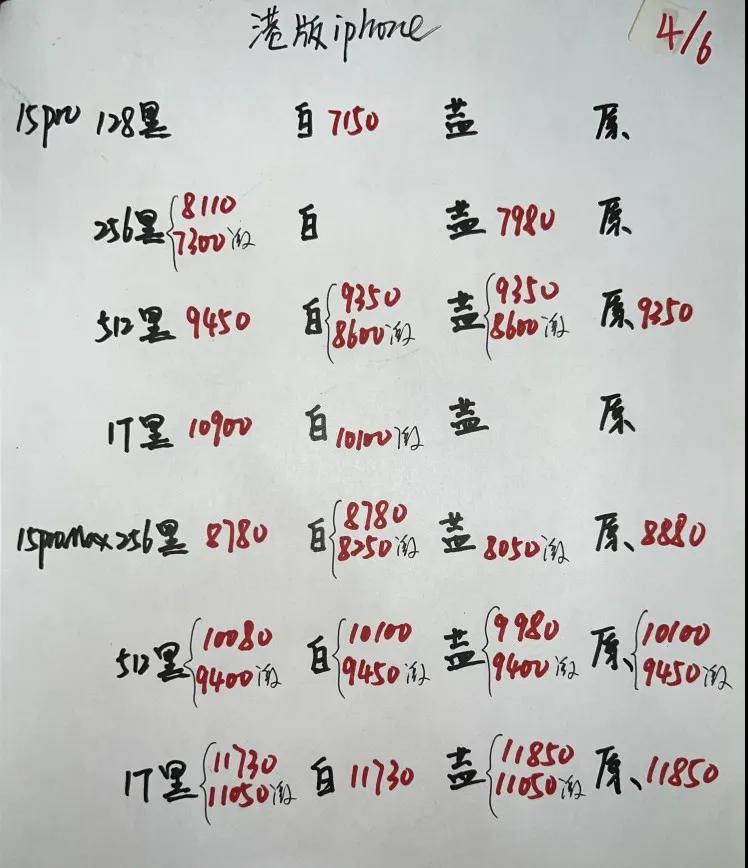 港版iphone 4/6
15pro 128黑 白 7150 蓝 原、
256黑 8110 白 蓝 7980 原、
7300激
512黑 9450 白 9350 蓝 9350 原、9350
8600激 8600激
1T黑 10900 白 10100激 蓝 原、
15proMax 256黑 8780 白 8780 蓝 8050激 原、8880
8250激
512黑 10080 白 10100 蓝 9980 原、10100
9400激 9450激 9400激 9450激
1T黑 11730 白 11730 蓝 11850 原、11850
11050激 11050激